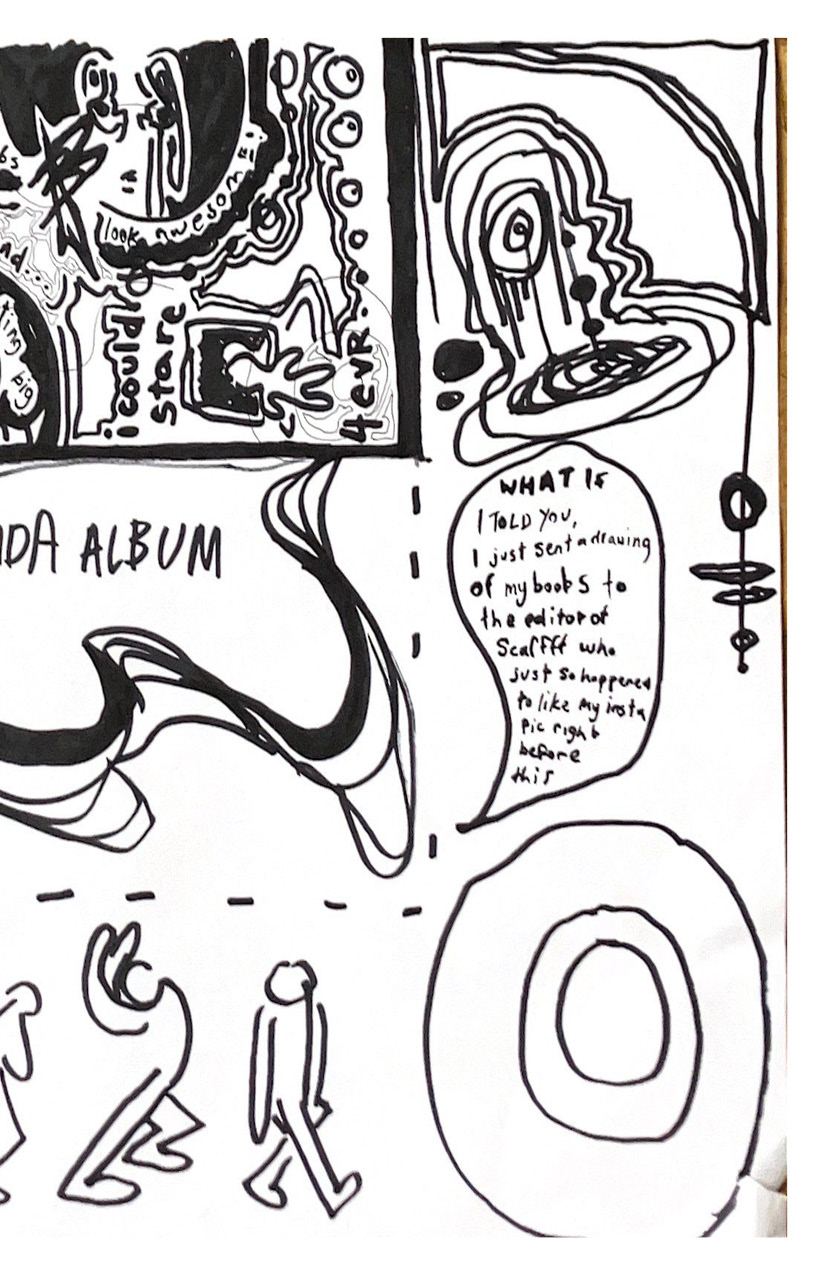 look awesome!!
i could
stare
4evR...
ALBUM
WHAT IF
I TOLD YOU,
I just sent a drawing
of my boobs to
the editor of
Scaffft who
just so happened
to like my insta
Pic right
before
this